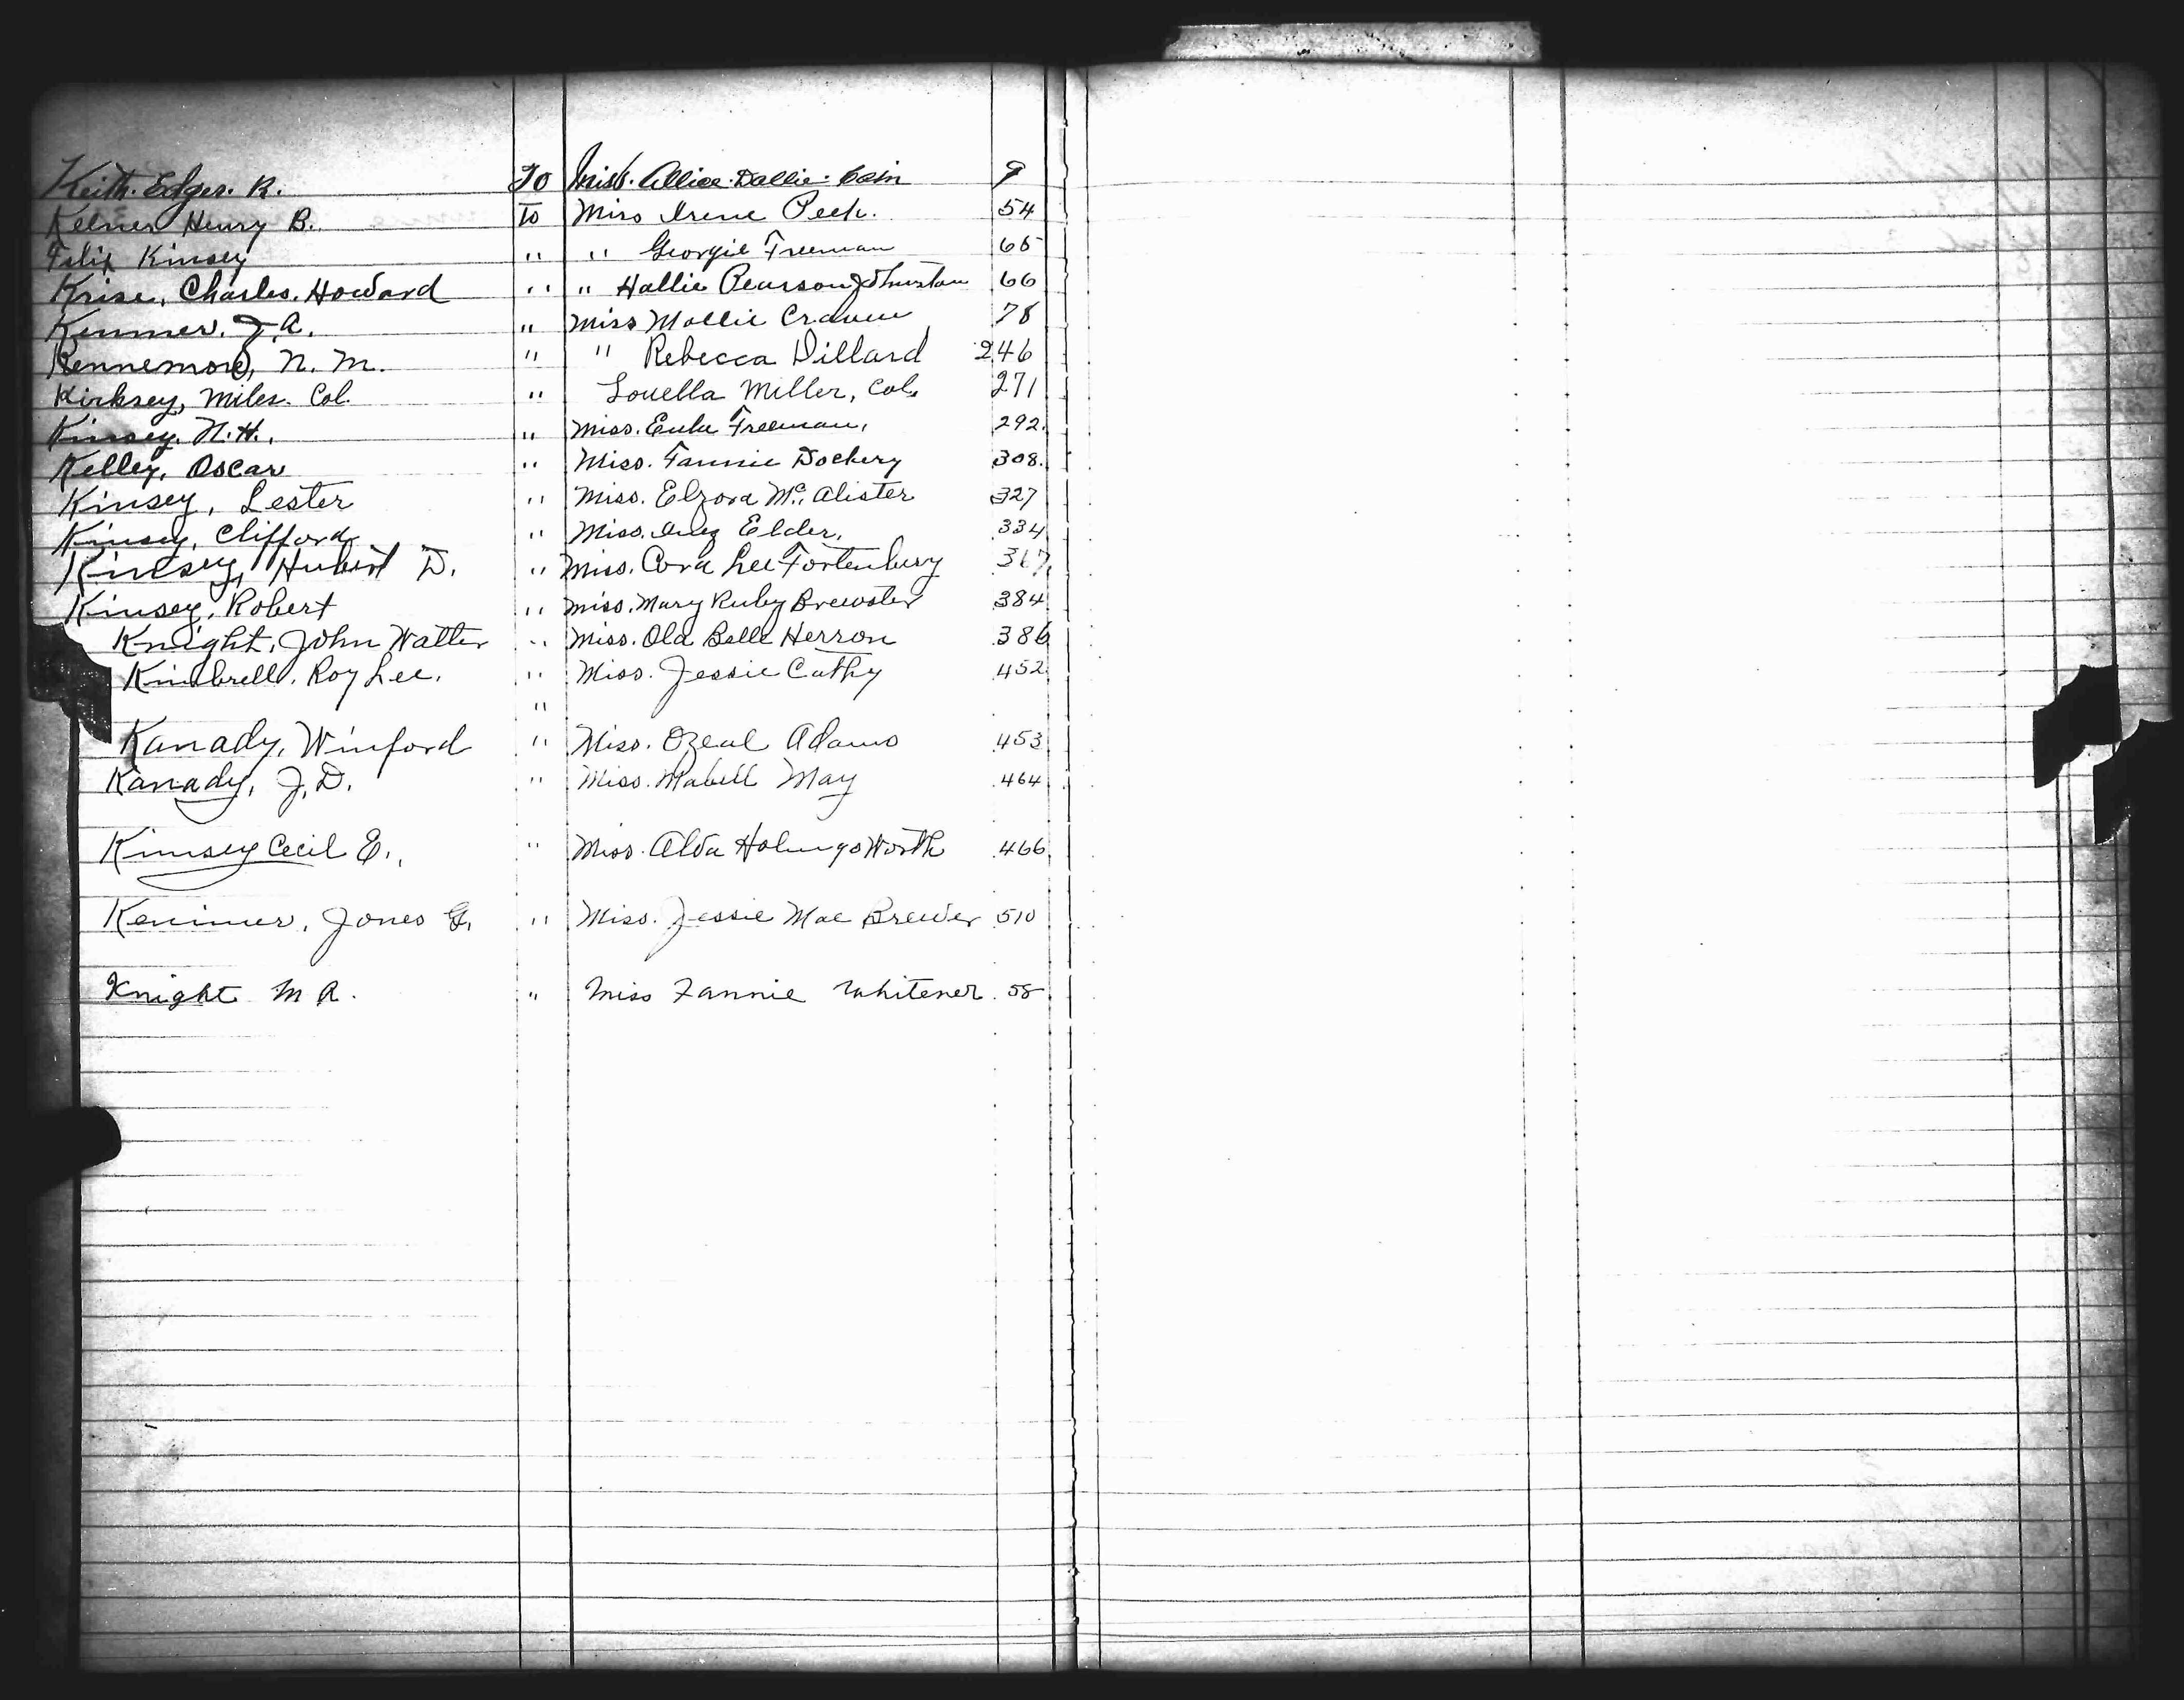 Keith. Edger. R. To Miss. Allice. Dallie. Cain 9
Kelner Henry B. To Miss Irene Peek. 54
Felix Kinsey " " Georgie Freeman 65
Krise, Charles. Howard " " Hallie Pearson Johnston 66
Kenmer, J. A. " Miss Mollie Craven 78
Kennemore, N. M. " " Rebecca Dillard 246
Kirksey, Miles. Col. " Louella Miller, Col. 271
Kinsey. N. H., " Miss. Eula Freeman, 292.
Kelley, Oscar " Miss. Fannie Dockery 308.
Kinsey, Lester " Miss. Elzora Mc. Alister 327
Kinsey, Clifford " Miss. Inez Elder, 334
Kinsey, Hubert D. " Miss. Cora Lee Fortenbury 367,
Kinsey, Robert " Miss. Mary Ruby Brewster 384
Knight, John Walter " Miss. Ola Belle Herron 386
Kimbrell, Roy Lee. " Miss. Jessie Cathy 452
"
Kanady, Winford " Miss. Ozeal Adams 453
Kanady, J. D. " Miss. Mabell May 464
Kimsey Cecil E., " Miss. Alda HolingsWorth 466
Kenimer, Jones G. " Miss. Jessie Mae Brewer 510
Knight M R. " Miss Fannie Whitener. 58